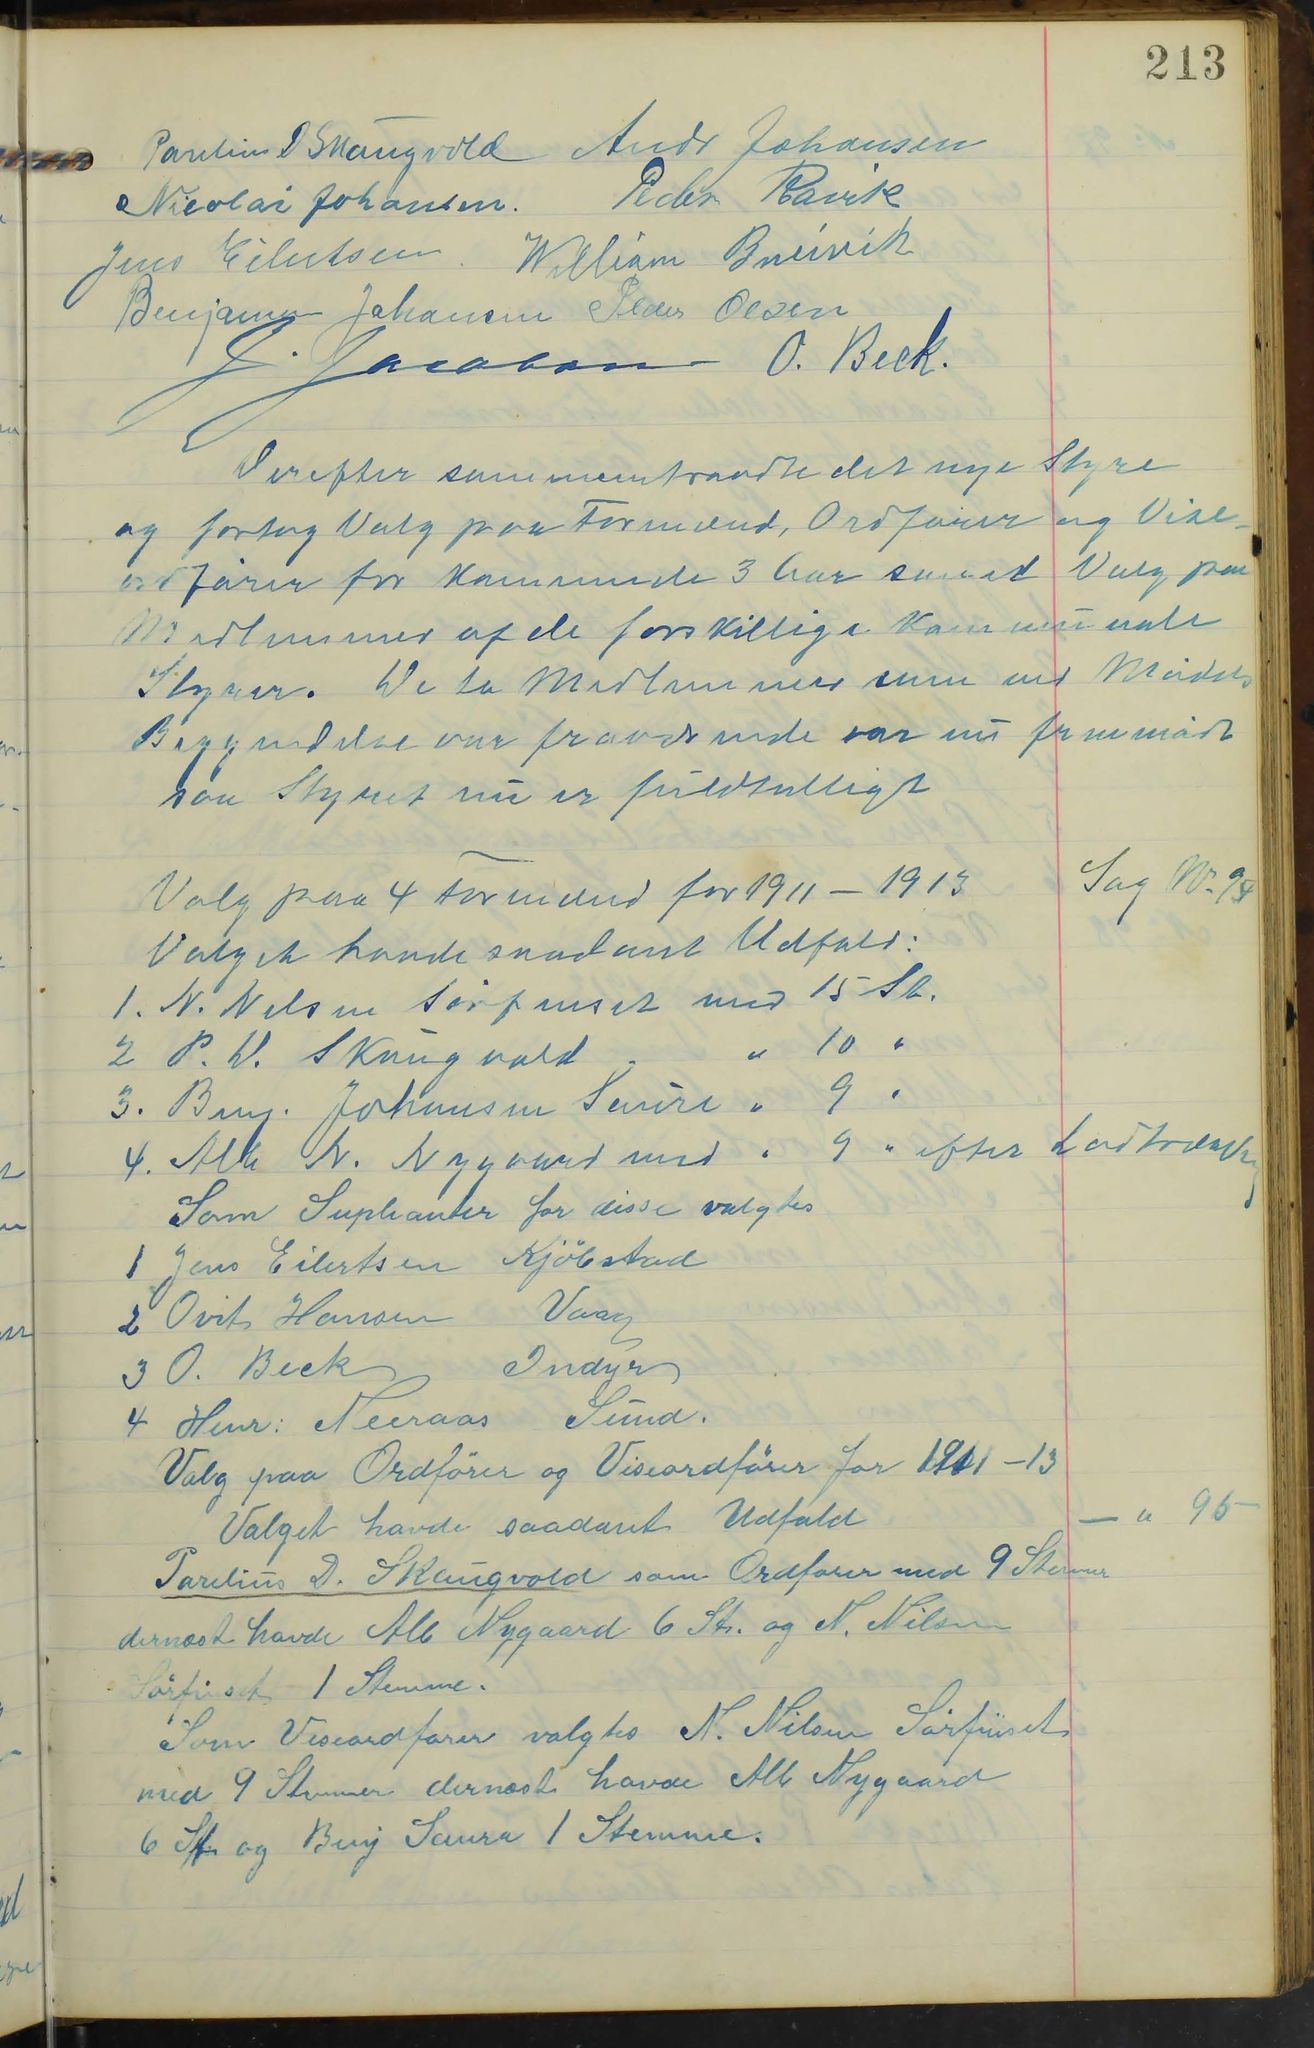 213
Parelius D Skaugvold Andr Johansen
Nicolai Johansen. Peder Ravik
Jens Eilertsen. William Breivik
Benjamin Johansen Peder Olsen
J. Jacobsen O. Beck.
Derefter sammentraadte det nye Styre
og fortog Valg paa Formænd, Ordfører og Vise-
ordfører for kommende 3 Aar samt Valg paa
Medlemmer af de forskillige kommunale
Styrer. De to Medlemmer som ved Mødets
Begyndelse var fraværende var nu fremmødt
saa Styret nu er fuldtalligt
Valg paa 4 Formænd for 1911 - 1913 Sag Nr. 94
Valget havde saadant Udfald:
1. N. Nilsen Sørfinset med 15 St.
2 P. D. Skaugvold " 10 "
3. Benj. Johansen Saura " 9 "
4. Alb N. Nygaard med " 9 " efter Lodtrækng
Som Suplianter for disse valgtes
1 Jens Eilertsen Kjøbstad
2 Ovit Hansen Vaag
3 O. Beck Indyr
4 Henr: Neeraas Sund.
Valg paa Ordfører og Viseordfører for 1911 - 13
Valget havde saadant Udfald — " 95
Parelius D. Skaugvold som Ordfører med 9 Stemmer
dernæst havde Alb Nygaard 6 St. og N. Nilsen
Sørfinset 1 Stemme.
Som Viseordfører valgtes N. Nilsen Sørfinset
med 9 Stemmer dernæst havde Alb Nygaard
6 St. og Benj Saura 1 Stemme.